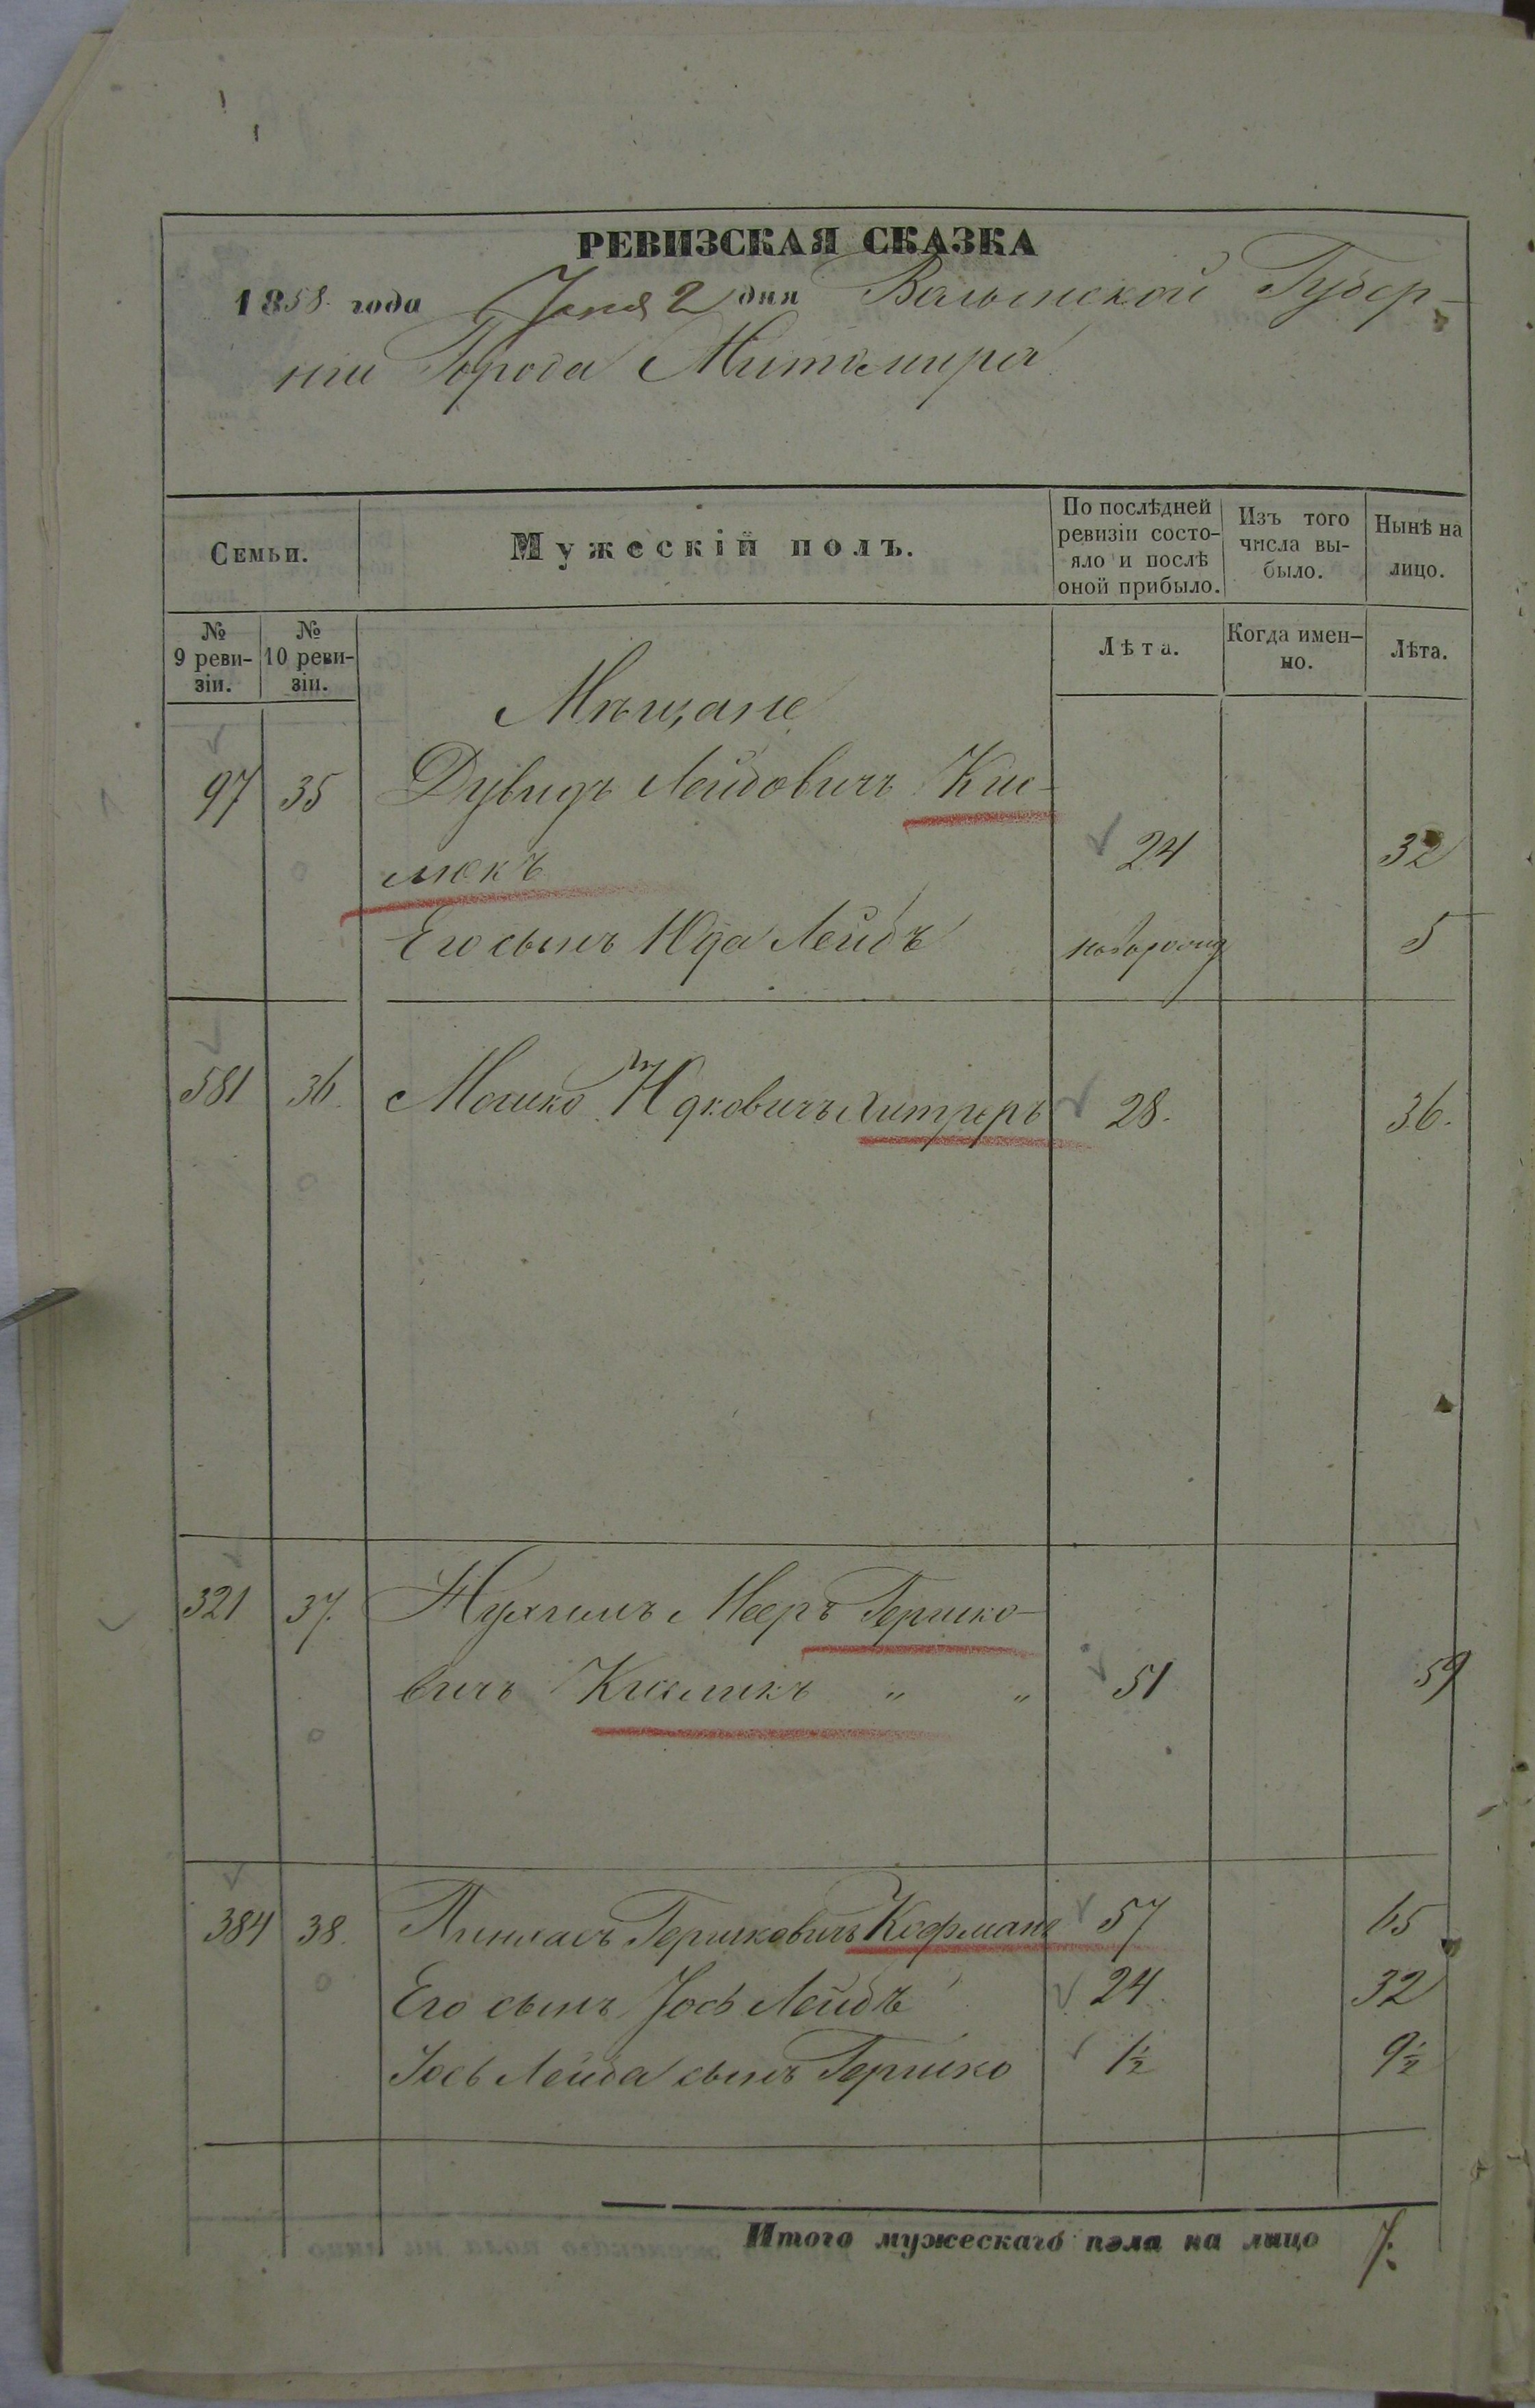 РЕВИЗСКАЯ СКАЗКА
1858 года Іюня 2 дня Волынской Губер-
ніи Города Житомира
Семьи. Мужескій полъ. По послѣдней ревизіи состо-яло и послѣ оной прибыло. Изъ того числа вы-было. Нынѣ на лицо.
№ 9 реви-зіи. № 10 реви-зіи. Лѣта. Когда имен-но. Лѣта.
Мѣщане
97 35 Дувидъ Лейбовичъ
24 32
Его сынъ Юда Лейбъ 5
581 36. Мошко Юдковичъ 28. 36.
321 37. Нухимъ Мееръ Гершко-
вичъ " " 51 59
384 38. Пинхасъ Гершковичъ Кофманъ 57 65
Его сынъ Іось Лейбъ 24. 32
Іось Лейба сынъ Гершко 1½ 9½
Итого мужескаго пола на лицо 7.